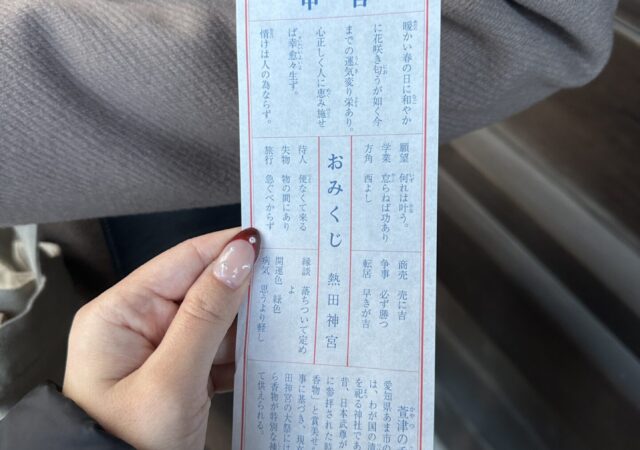 中吉
暖かい春の日に和やか
に花咲き匂うが如く今
までの運気変り栄あり。
心正しく人に恵み施せ
ば幸愈々生ず。
情けは人の為ならず。
願望　何れは叶う。
学業　怠らねば功あり
方角　西よし
商売　売に吉
争事　必ず勝つ
転居　早きが吉
おみくじ　熱田神宮
待人　便なくて来る
失物　物の間にあり
旅行　急ぐべからず
縁談　落ちついて定め
よ
開運色　緑色
病気　思うより軽し
萱津の
愛知県あま市の
は、わが国の漬
を祀る神社であ
昔、日本武尊が
に参拝された時
香物」と賞美せ
事に基づき、現在
田神宮の大祭には
ら香物が特別な神
て供えられる。